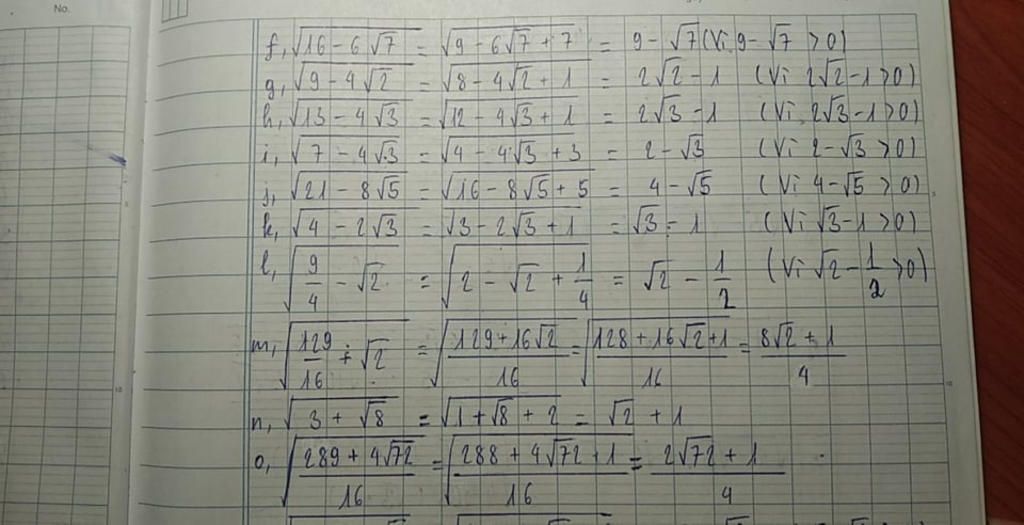 No.
f, √(16 - 6√7) = √(9 - 6√7 + 7) = 9 - √7 (Vì 9 - √7 > 0)
g, √(9 - 4√2) = √(8 - 4√2 + 1) = 2√2 - 1 (Vì 2√2 - 1 > 0)
h, √(13 - 4√3) = √(12 - 4√3 + 1) = 2√3 - 1 (Vì 2√3 - 1 > 0)
i, √(7 - 4√3) = √(4 - 4√3 + 3) = 2 - √3 (Vì 2 - √3 > 0)
j, √(21 - 8√5) = √(16 - 8√5 + 5) = 4 - √5 (Vì 4 - √5 > 0)
k, √(4 - 2√3) = √(3 - 2√3 + 1) = √3 - 1 (Vì √3 - 1 > 0)
l, √(9/4 - √2) = √(2 - √2 + 1/4) = √2 - 1/2 (Vì √2 - 1/2 > 0)
m, √(129/16 + √2) = √((129 + 16√2)/16) = √((128 + 16√2 + 1)/16) = (8√2 + 1)/4
n, √(3 + √8) = √(1 + √8 + 2) = √2 + 1
o, √((289 + 4√72)/16) = √((288 + 4√72 + 1)/16) = (2√72 + 1)/4